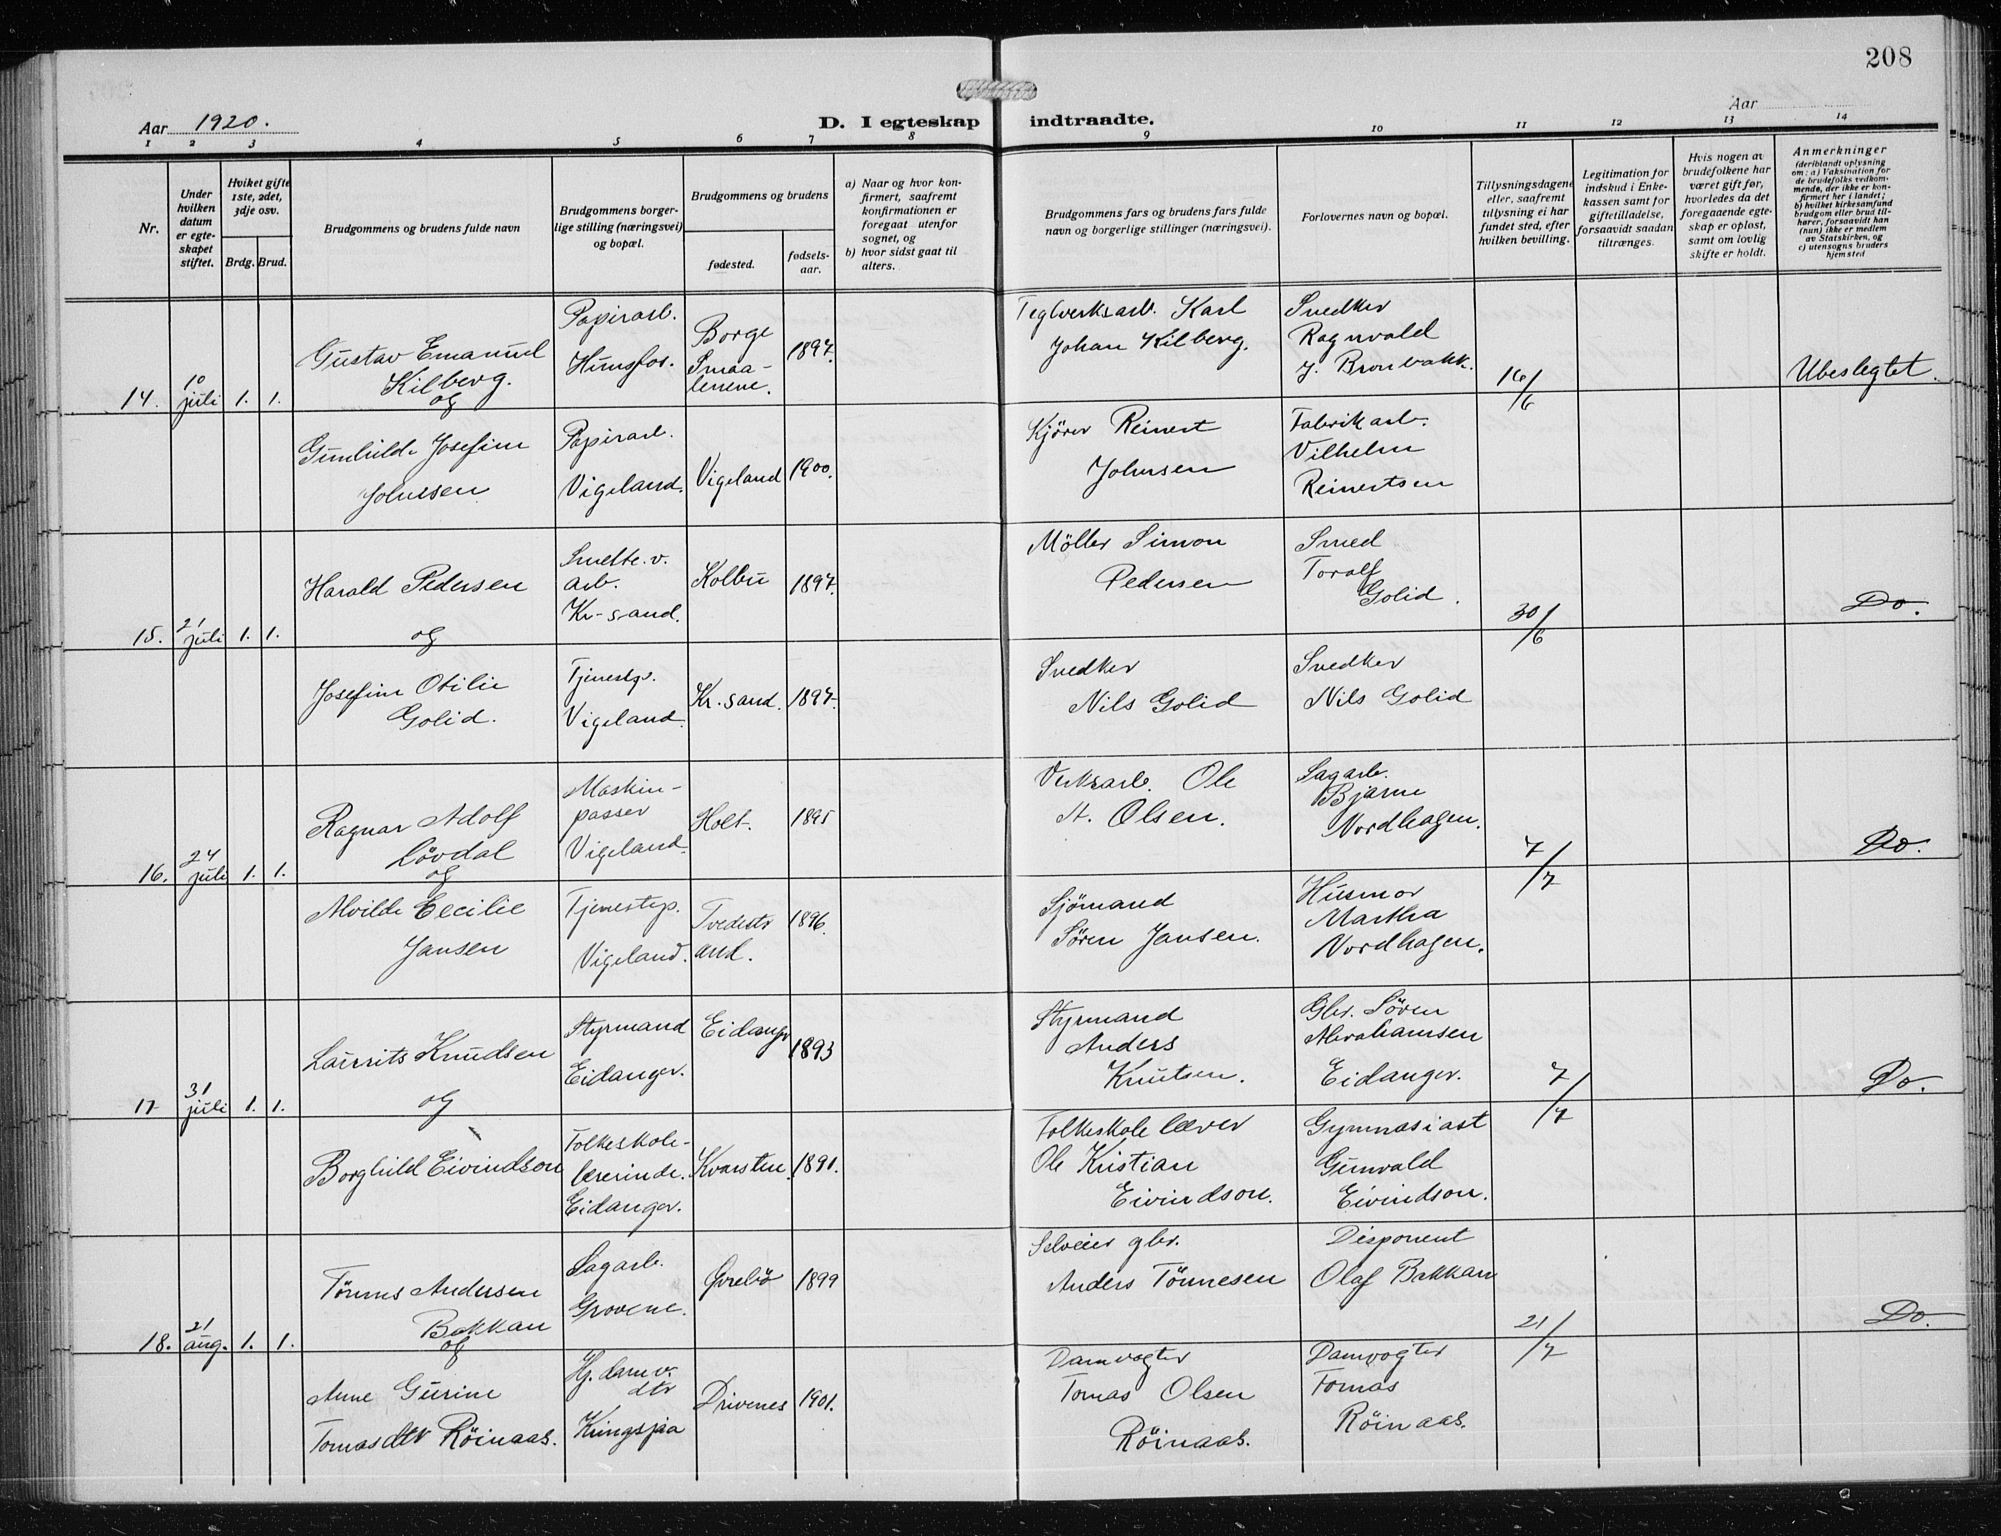 208
Aar 1920.
D. I egteskap indtraadte.
Aar
1 2 3 4 5 6 7 8 9 10 11 12 13 14
Nr.
Under hvilken datum er egteskapet stiftet.
Hviket gifte 1ste, 2det, 3dje osv.
Brdg. Brud.
Brudgommens og brudens fulde navn
Brudgommens borgerlige stilling (næringsvei) og bopæl.
Brudgommens og brudens
fødested.
fødselsaar.
a) Naar og hvor konfirmert, saafremt konfirmationen er foregaat utenfor sognet, og
b) hvor sidst gaat til alters.
Brudgommens fars og brudens fars fulde navn og borgerlige stillinger (næringsvei).
Forlovernes navn og bopæl.
Tillysningsdagene eller, saafremt tillysning ei har fundet sted, efter hvilken bevilling.
Legitimation for indskud i Enkekassen samt for giftetilladelse, forsaavidt saadan tiltrænges.
Hvis nogen av brudefolkene har været gift før, hvorledes da det foregaaende egteskap er opløst, samt om lovlig skifte er holdt.
Anmerkninger
(deriblandt oplysning om: a) Vaksination for de brudefolks vedkommende, der ikke er konfirmert her i landet;
b) hvilket kirkesamfund brudgom eller brud tilhører, forsaavidt han (hun) ikke er medlem av Statskirken, og
c) utensogns bruders hjemsted
14. 10 juli 1. 1.
Gustav Emanuel Kilberg.
og
Papirarb. Hunsfos.
Borge Smaalenene.
1897.
Teglverksarb. Karl Johan Kilberg.
Snedker Ragnvald J. Bronbakk.
16/6
Ubeslegtet.
Gunhilde Josefine Johnsen
Papirarb. Vigeland.
Vigeland
1900.
Kjører Reinert Johnsen
Fabrikarb. Vilhelm Reinertsen
15. 21 juli 1. 1.
Harald Pedersen
og
Smelte.v. arb. Kr-sand.
Kolbu
1897.
Møller Simon Pedersen
Smed Toralf Golid.
30/6
Do.
Josefine Otilie Golid.
Tjenestp. Vigeland.
Kr.sand.
1897.
Snedker Nils Golid
Snedker Nils Golid
16. 24 juli 1. 1.
Ragnar Adolf Lövdal
og
Maskinpasser Vigeland.
Holt.
1895
Verksarb. Ole A. Olsen.
Sagarb. Bjarne Nordhagen.
7/7
Do.
Alvilde Cecilie Jansen
Tjenestep. Vigeland.
Tvedestrand.
1896.
Sjømand Søren Jansen.
Husmor Martha Nordhagen.
17 31 juli 1. 1.
Laurits Knudsen
og
Styrmand Eidanger.
Eidanger
1893
Styrmand Anders Knutsen.
Gbr. Søren Abrahamsen Eidanger.
7/7
Do.
Borghild Eivindson
Folkeskolelærerinde. Eidanger.
Kvarsten.
1891.
Folkeskolelærer Ole Kristian Eivindson.
Gymnasiast Gunvald Eivindson.
18. 21 aug. 1. 1.
Tønnes Andersen Bakkan
og
Sagarb. Grovene.
Øvrebö
1899
Selveier gbr. Anders Tønnesen
Disponent Olaf Bakkan
21/7
Do.
Anne Gurine Tomasdtr Röinaas.
Hj. damv. dtr Kringsjaa
Drivenes
1901.
Damvogter Tomas Olsen Röinaas.
Damvogter Tomas Röinaas.